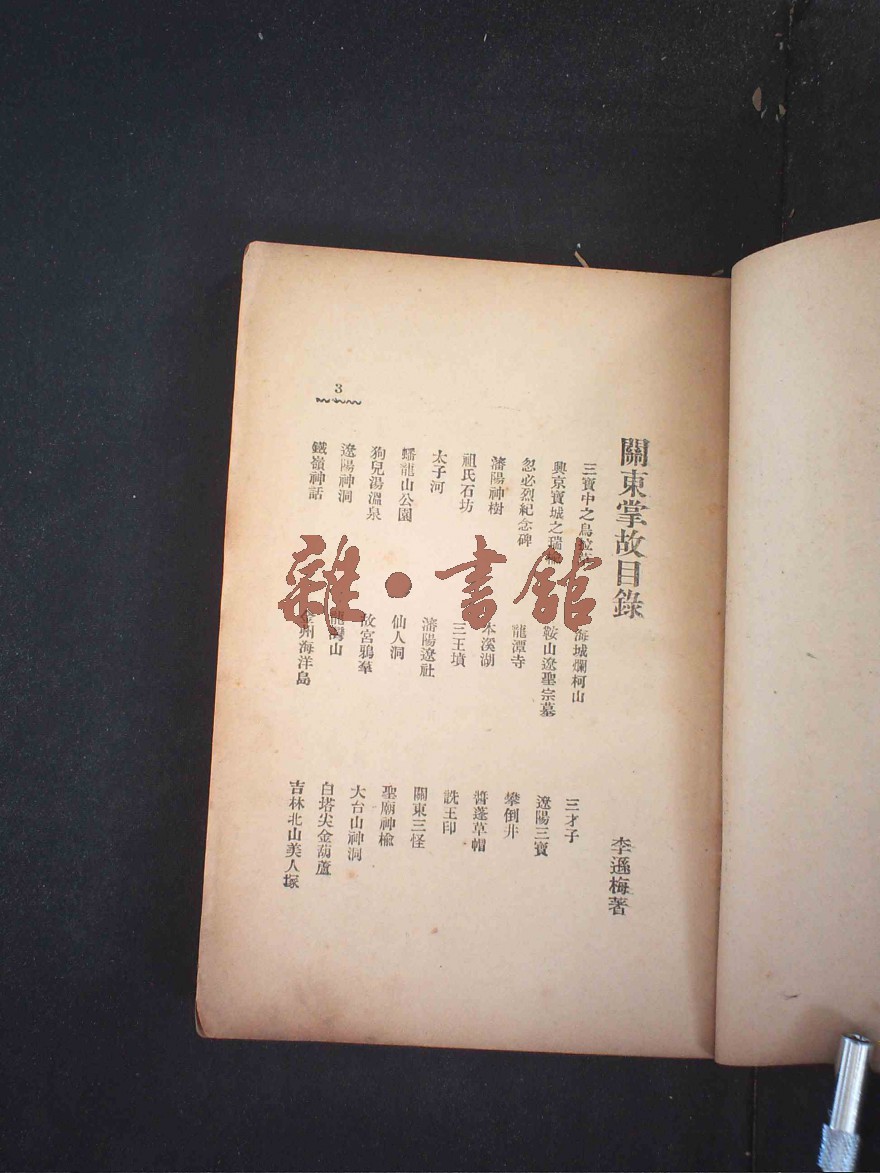 關東掌故目錄
李遜梅著
三寶中之烏拉草
海城爛柯山
三才子
興京寶城之瑞榆
鞍山遼聖宗墓
遼陽三寶
忽必烈紀念碑
龍潭寺
攀倒井
瀋陽神樹
本溪湖
醬蓬草帽
祖氏石坊
三王墳
詵王印
太子河
瀋陽遼社
關東三怪
蟠龍山公園
仙人洞
聖廟神楡
狗兒湯溫泉
故宮鴉羣
大台山神洞
遼陽神洞
龍灣山
白塔尖金葫蘆
鐵嶺神話
金州海洋島
吉林北山美人塚
3
雜·書館